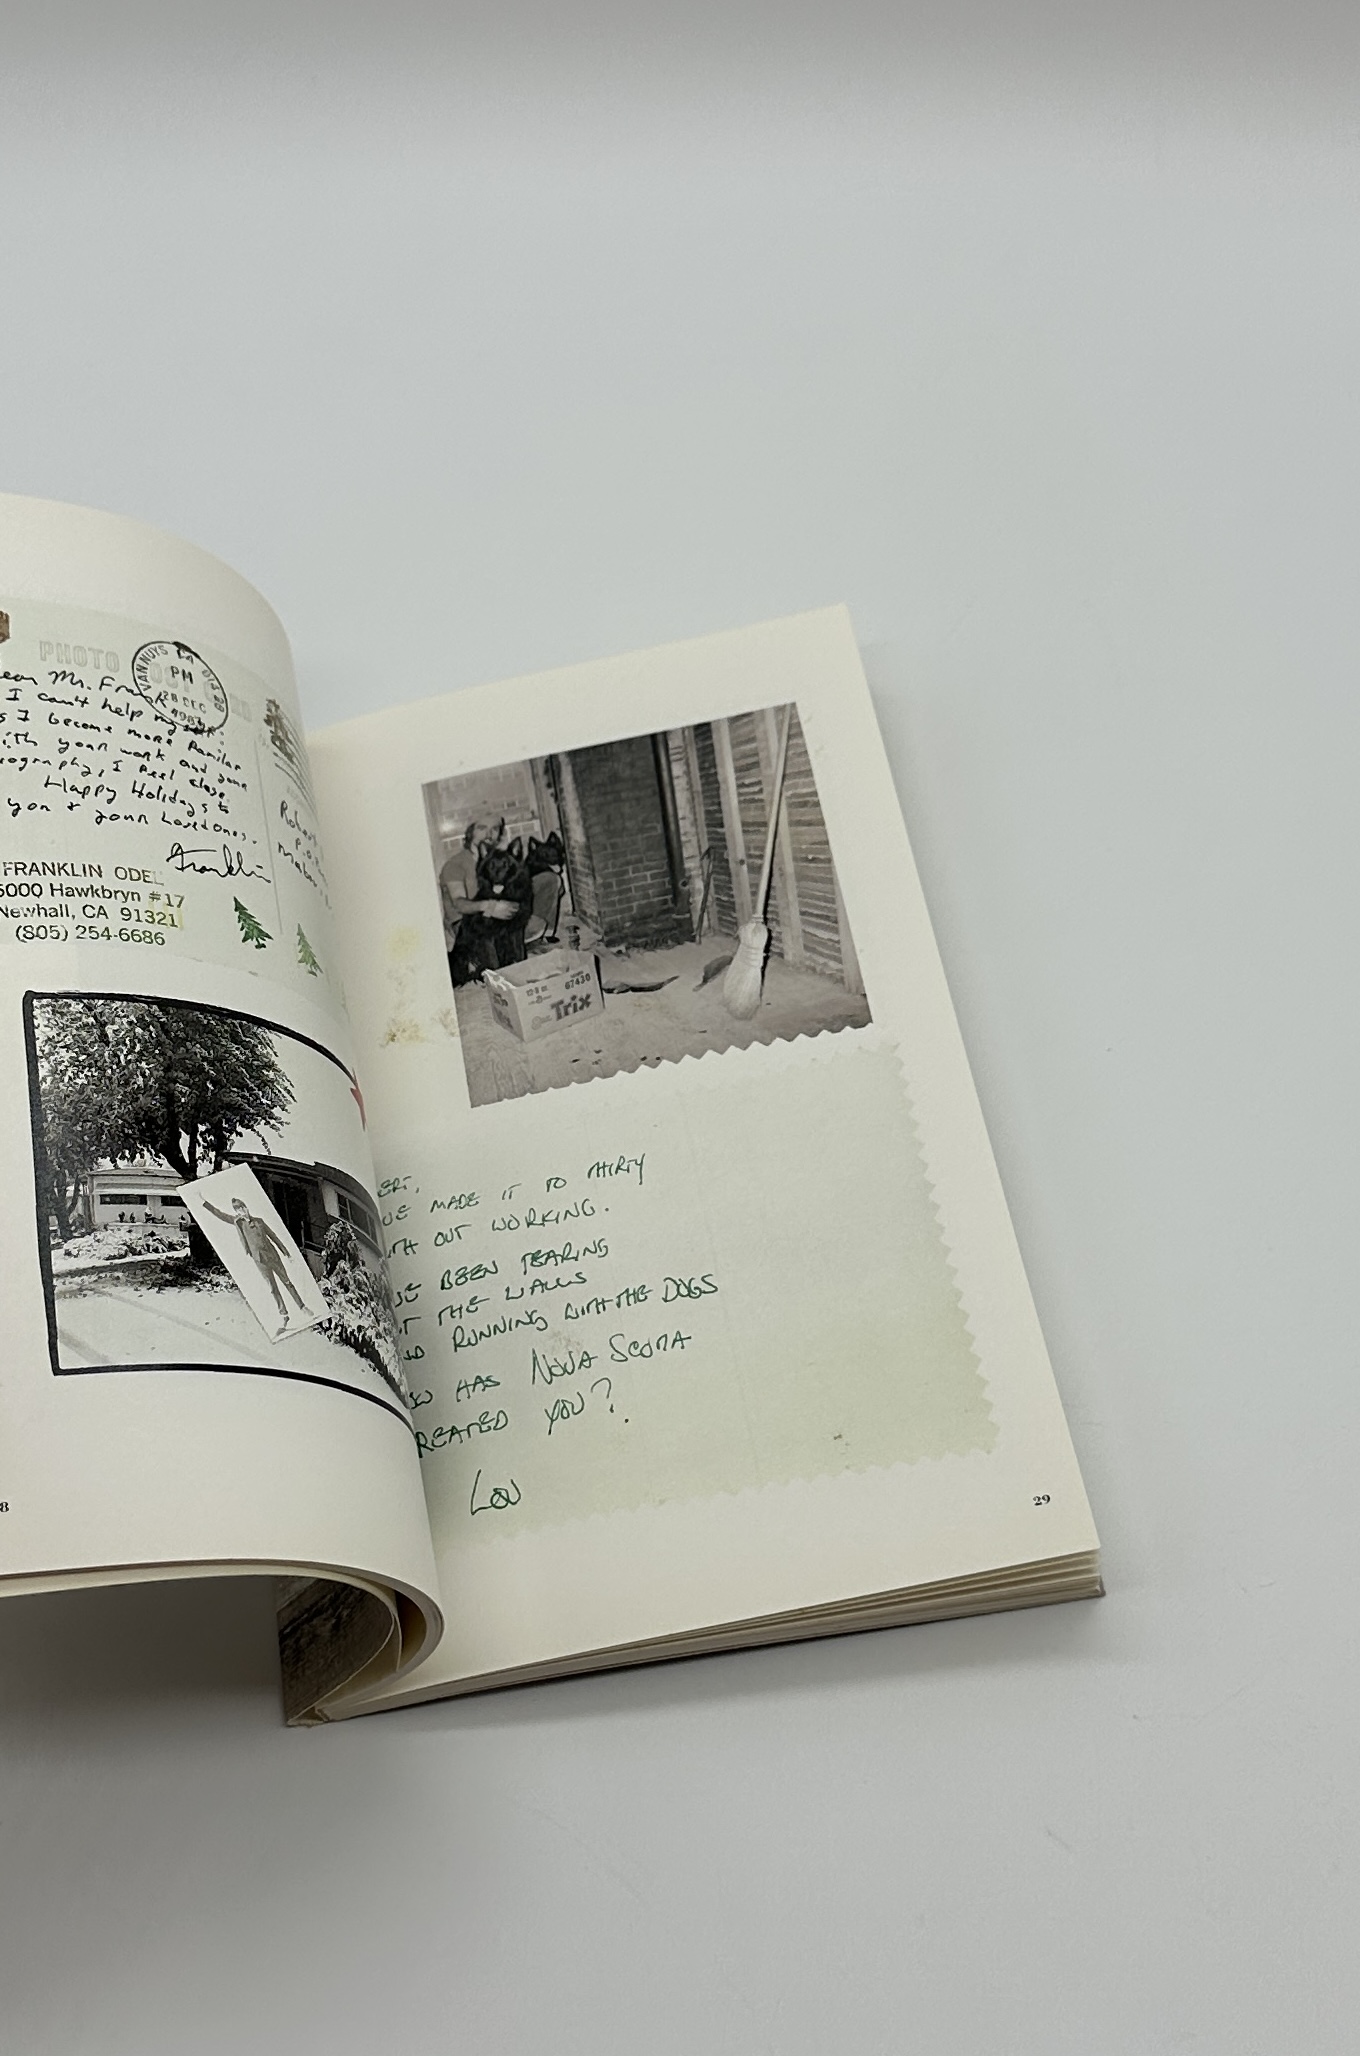 PHOTO
VAN NUYS CA
PM
28 DEC
Mr. Frank
I can't help
I become more familiar
your work and your
I feel close.
Happy Holidays to
you & your Loved ones.
Franklin
FRANKLIN ODEL
5000 Hawkbryn #17
Newhall, CA 91321
(805) 254-6686
67430
Trix
MADE IT TO THIRTY
OUT WORKING.
BEEN TEARING
THE WALLS
RUNNING WITH THE DOGS
HAS NOVA SCOTIA
REATED YOU?
LOU
8
29